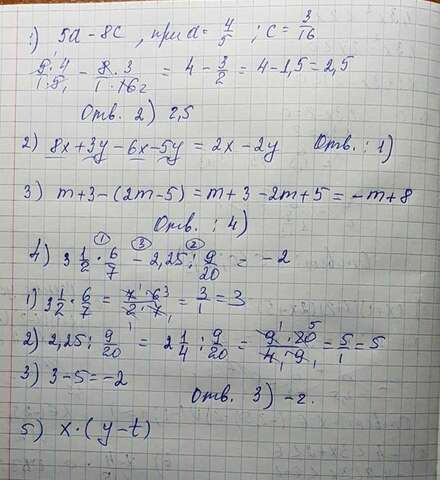 1) 5a - 8c , при a = 4/5 ; c = 3/16
5·4/1·5 - 8·3/1·16 2 = 4 - 3/2 = 4 - 1,5 = 2,5
Отв. 2) 2,5
2) 8x + 3y - 6x - 5y = 2x - 2y Отв. : 1)
3) m + 3 - (2m - 5) = m + 3 - 2m + 5 = -m + 8
Отв. : 4)
4) 3 1/2 · 6/7 - 2,25 : 9/20 = -2
1) 3 1/2 · 6/7 = 7·6 3/2·7 = 3/1 = 3
2) 2,25 : 9/20 = 2 1/4 : 9/20 = 9·20 5/4·9 = 5/1 = 5
3) 3 - 5 = -2
Отв. 3) -2.
5) x · (y - t)